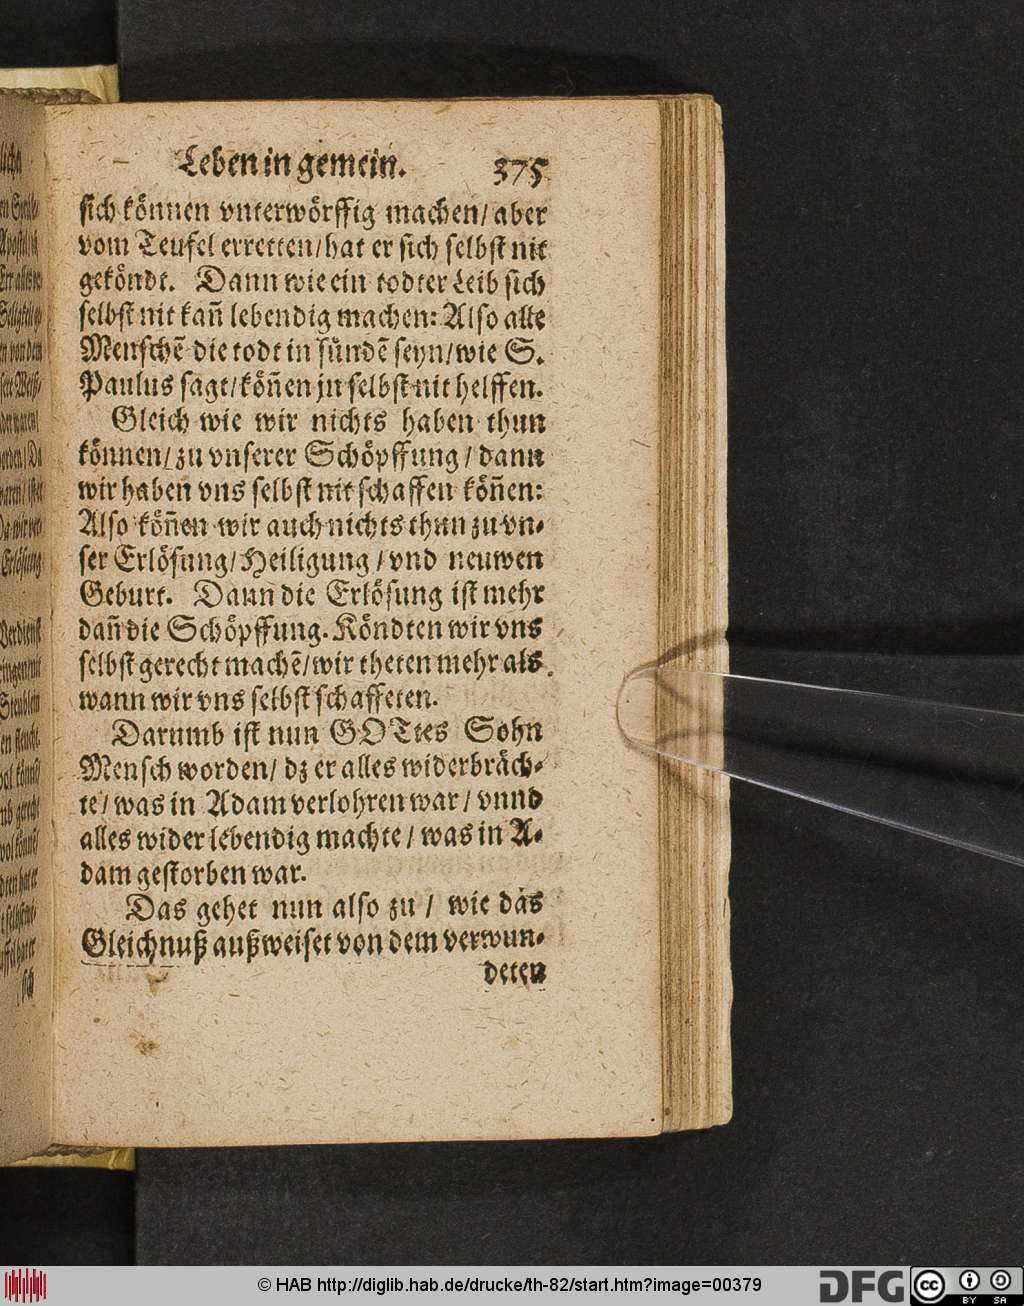 Leben in gemein. 375
sich können vnterwörffig machen/ aber
vom Teufel erretten/ hat er sich selbst nit
geköndt. Dann wie ein todter Leib sich
selbst nit kañ lebendig machen: Also alle
Menschē die todt in sündē seyn/ wie S.
Paulus sagt/ köñen jn selbst nit helffen.
Gleich wie wir nichts haben thun
können/ zu vnserer Schöpffung/ dann
wir haben vns selbst nit schaffen köñen:
Also köñen wir auch nichts thun zu vn⸗
ser Erlösung/ Heiligung/ vnd neuwen
Geburt. Dann die Erlösung ist mehr
dañ die Schöpffung. Köndten wir vns
selbst gerecht machē/ wir theten mehr als
wann wir vns selbst schaffeten.
Darumb ist nun GOTtes Sohn
Mensch worden/ dz er alles widerbräch⸗
te/ was in Adam verlohren war/ vnnd
alles wider lebendig machte/ was in A⸗
dam gestorben war.
Das gehet nun also zu/ wie das
Gleichnuß außweiset von dem verwun⸗
deten
© HAB http://diglib.hab.de/drucke/th-82/start.htm?image=00379
DFG
cc
BY SA